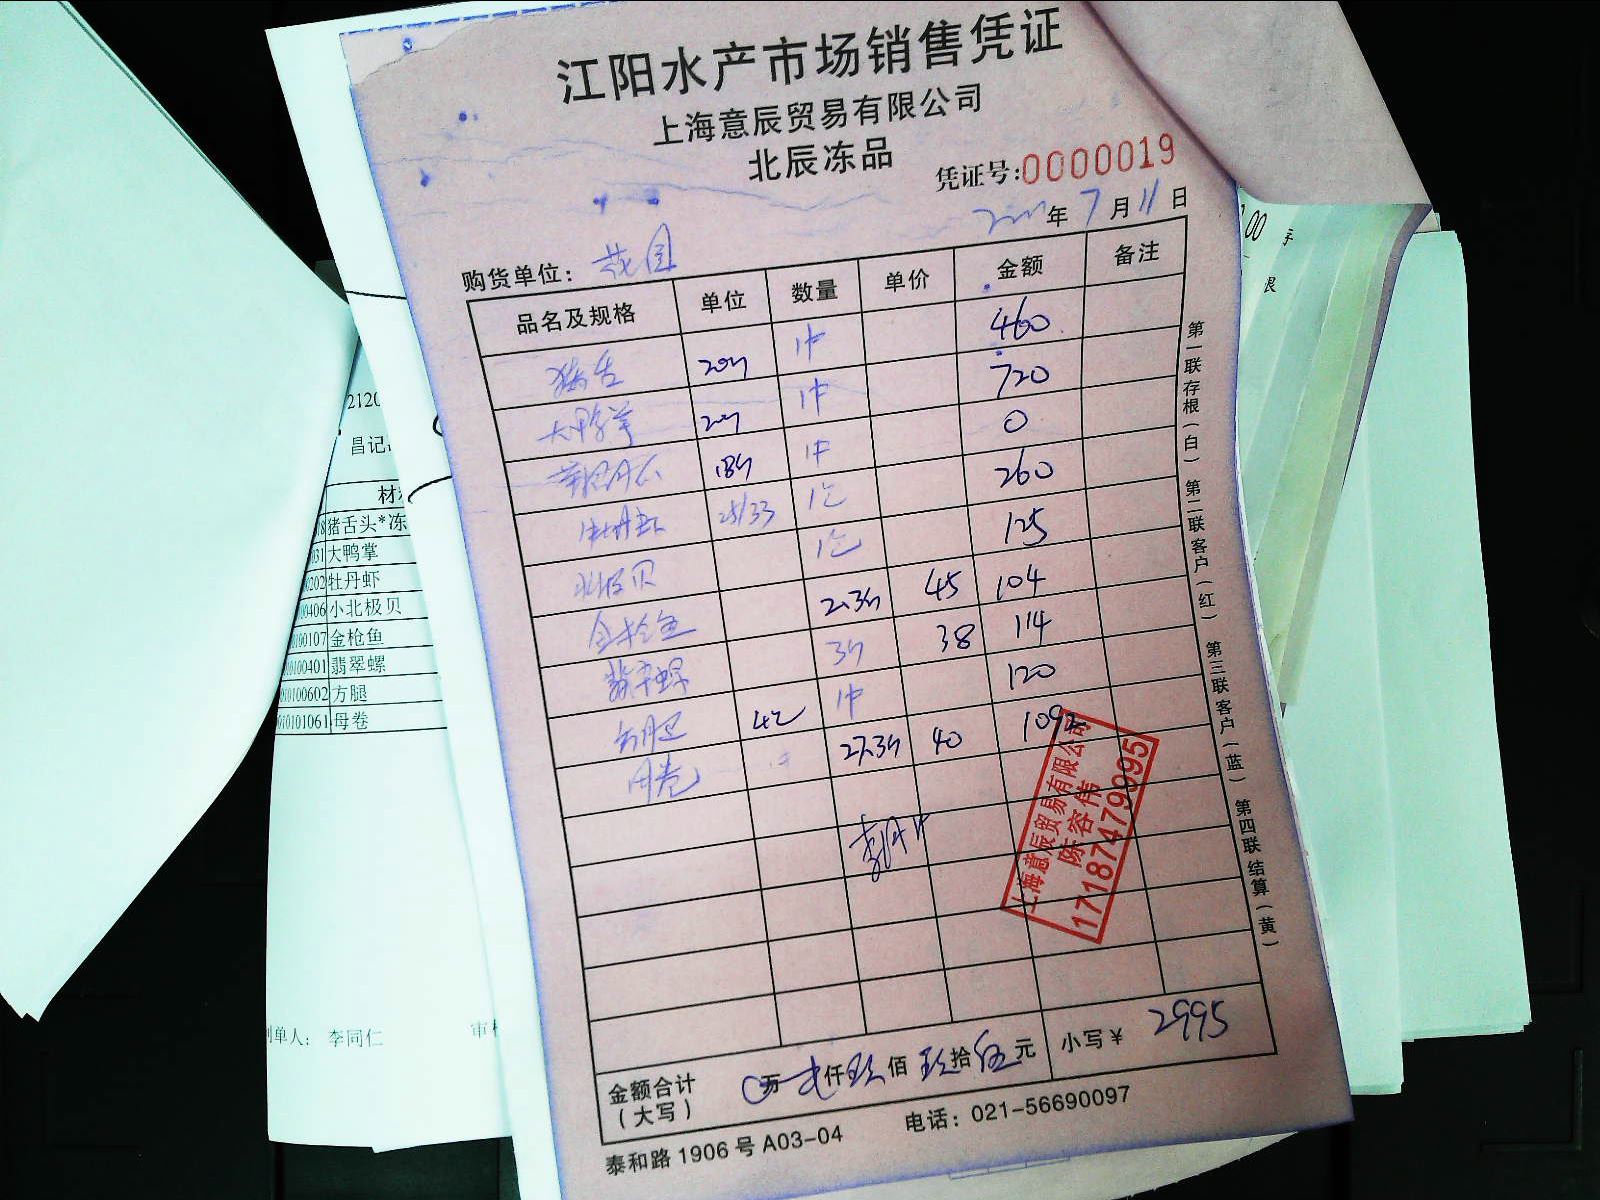 江阳水产市场销售凭证
上海意辰贸易有限公司
北辰冻品
凭证号:0000019
年 7 月 11 日
购货单位： 花园
品名及规格 单位 数量 单价 金额 备注
猪舌 20斤 1件 460
大鸭掌 20斤 1件 720
18斤 1件 0
牡丹虾 28/33 1包 260
北极贝 1包 125
金枪鱼 2.3斤 45 104
翡翠螺 3斤 38 114
方腿 4包 1件 120
母卷 27.3斤 40 1092
上海意辰贸易有限公司
陈容伟
17187479995
金额合计（大写） 万 贰仟玖佰玖拾伍元 小写￥ 2995
泰和路 1906 号 A03-04 电话：021-56690097
第一联 存根（白） 第二联 客户（红） 第三联 客户（蓝） 第四联 结算（黄）
2120
昌记
材
猪舌头*冻
031 大鸭掌
0202 牡丹虾
00406 小北极贝
0100107 金枪鱼
0100401 翡翠螺
010100602 方腿
010101061 母卷
制单人： 李同仁
审核